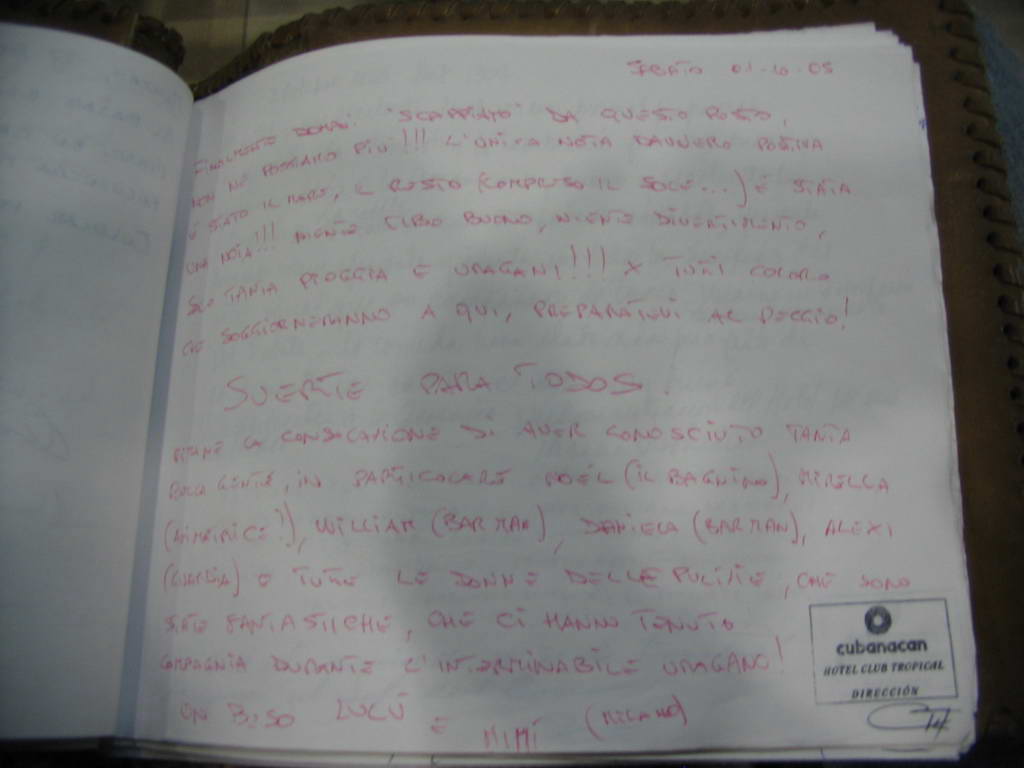 SABATO 01-10-05
FINALMENTE DOMANI "SCAPPIAMO" DA QUESTO POSTO,
NON NE POSSIAMO PIÙ!!! L'UNICA NOTA DAVVERO POSITIVA
È STATO IL MARE, IL RESTO (COMPRESO IL SOLE...) È STATA
UNA NOIA!!! NIENTE CIBO BUONO, NIENTE DIVERTIMENTO,
SOLO TANTA PIOGGIA E URAGANI!!! X TUTTI COLORO
CHE SOGGIORNERANNO A QUI, PREPARATEVI AL PEGGIO!
SUERTE PARA TODOS.
RIMANE LA CONSOLAZIONE DI AVER CONOSCIUTO TANTA
BELLA GENTE, IN PARTICOLARE NOEL (IL BAGNINO), MIRELLA
(ANIMATRICE!), WILLIAM (BARMAN), DANIELA (BARMAN), ALEXI
(GUARDIA) E TUTTE LE DONNE DELLE PULIZIE, CHE SONO
STATE FANTASTICHE, CHE CI HANNO TENUTO
COMPAGNIA DURANTE L'INTERMINABILE URAGANO!
UN BESO LULÙ E MIMÌ (MILANO)
cubanacan
HOTEL CLUB TROPICAL
DIRECCIÓN